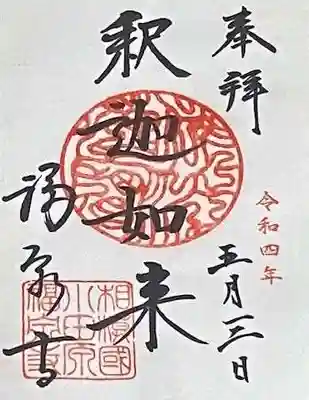 奉拝
令和四年
五月三日
釈迦如来
福泉寺
相模國
小田原
福泉寺